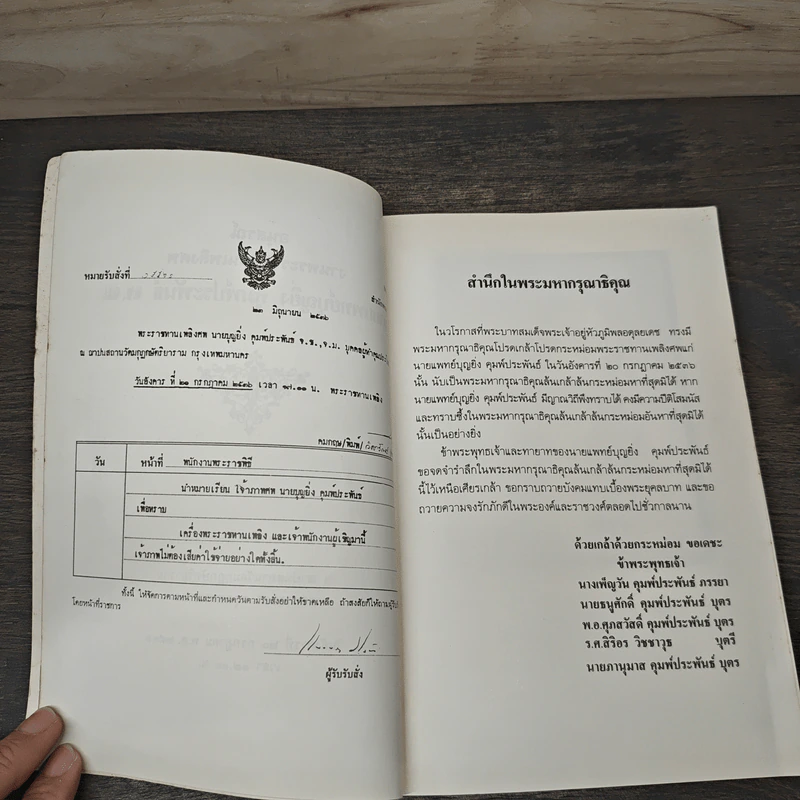 หมายรับสั่งที่
สำนัก
๒๓ มิถุนายน ๒๕๓๖
พระราชทานเพลิงศพ นายบุญยิ่ง คุมพ์ประพันธ์ จ.ช.,จ.ม.
ณ ฌาปนสถานวัดมกุฏกษัตริยาราม กรุงเทพมหานคร
วันอังคาร ที่ ๒๐ กรกฎาคม ๒๕๓๖ เวลา ๑๗.๐๐ น. พระราชทานเพลิง
คมกฤษ/พิมพ์/
วัน หน้าที่ พนักงานพระราชพิธี
นำหมายเรียน เจ้าภาพศพ นายบุญยิ่ง คุมพ์ประพันธ์
เพื่อทราบ
เครื่องพระราชทานเพลิง และเจ้าพนักงานผู้เชิญมานี้
เจ้าภาพไม่ต้องเสียค่าใช้จ่ายอย่างใดทั้งสิ้น.
ทั้งนี้ ให้จัดการตามหน้าที่และกำหนดวันตามรับสั่งอย่าให้ขาดเหลือ ถ้าสงสัยก็ให้ถามผู้รับ
โดยหน้าที่ราชการ
ผู้รับรับสั่ง
สำนึกในพระมหากรุณาธิคุณ
ในวโรกาสที่พระบาทสมเด็จพระเจ้าอยู่หัวภูมิพลอดุลยเดช ทรงมี
พระมหากรุณาธิคุณโปรดเกล้าโปรดกระหม่อมพระราชทานเพลิงศพแก่
นายแพทย์บุญยิ่ง คุมพ์ประพันธ์ ในวันอังคารที่ ๒๐ กรกฎาคม ๒๕๓๖
นั้น นับเป็นพระมหากรุณาธิคุณล้นเกล้าล้นกระหม่อมหาที่สุดมิได้ หาก
นายแพทย์บุญยิ่ง คุมพ์ประพันธ์ มีญาณวิถีพึงทราบได้ คงมีความปีติโสมนัส
และทราบซึ้งในพระมหากรุณาธิคุณล้นเกล้าล้นกระหม่อมอันหาที่สุดมิได้
นั้นเป็นอย่างยิ่ง
ข้าพระพุทธเจ้าและทายาทของนายแพทย์บุญยิ่ง คุมพ์ประพันธ์
ขอจดจำรำลึกในพระมหากรุณาธิคุณล้นเกล้าล้นกระหม่อมหาที่สุดมิได้
นี้ไว้เหนือเศียรเกล้า ขอกราบถวายบังคมแทบเบื้องพระยุคลบาท และขอ
ถวายความจงรักภักดีในพระองค์และราชวงศ์ตลอดไปชั่วกาลนาน
ด้วยเกล้าด้วยกระหม่อม ขอเดชะ
ข้าพระพุทธเจ้า
นางเพ็ญวัน คุมพ์ประพันธ์ ภรรยา
นายธนูศักดิ์ คุมพ์ประพันธ์ บุตร
พ.อ.ศุภสวัสดิ์ คุมพ์ประพันธ์ บุตร
ร.ศ.สิริอร วิชชาวุธ บุตรี
นายภานุมาส คุมพ์ประพันธ์ บุตร